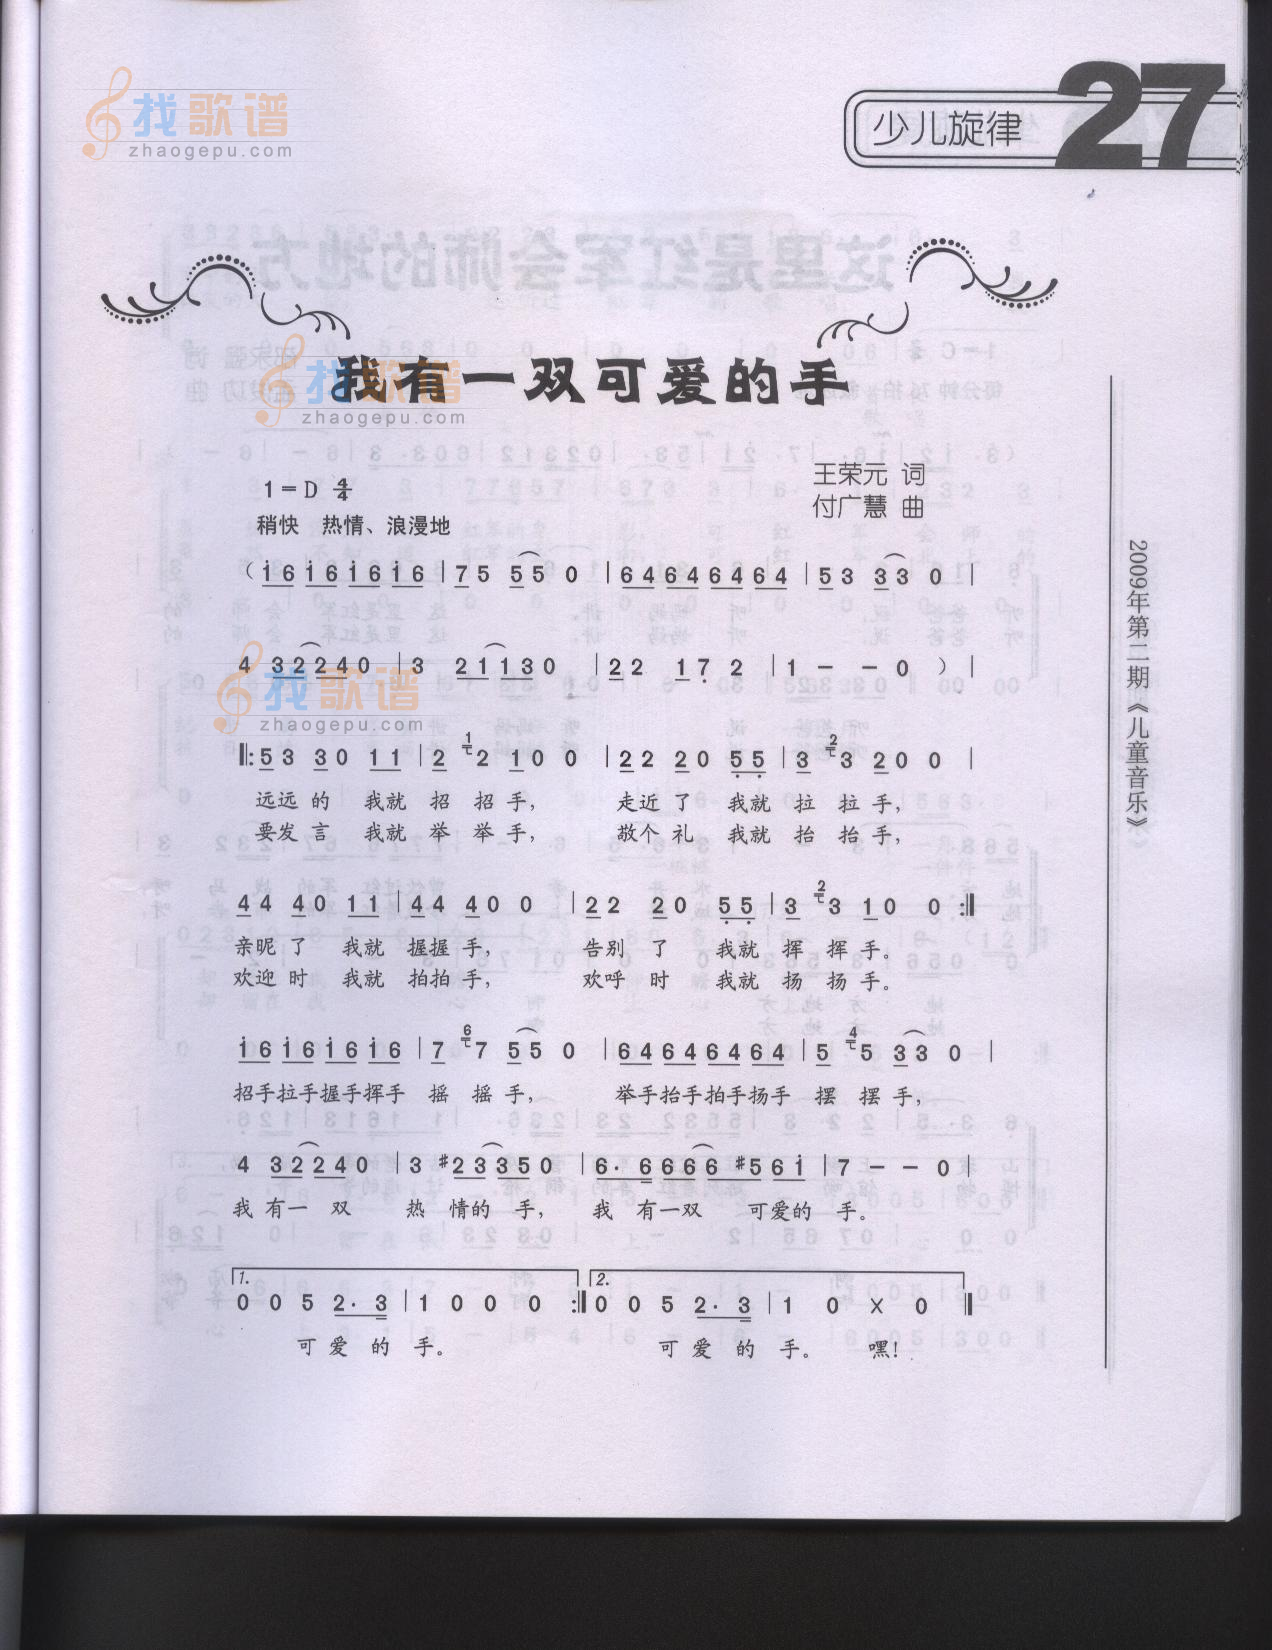 找歌谱
zhaogepu.com
少儿旋律
27
我有一双可爱的手
找歌谱
zhaogepu.com
王荣元 词
付广慧 曲
1=D 4/4
稍快 热情、浪漫地
(i6i6i6i6 | 75 550 | 64646464 | 53 330 |
4 32240 | 3 21130 | 22 172 | 1 - - 0 ) |
找歌谱
zhaogepu.com
‖: 53 30 11 | 2 1 2 100 | 22 20 55 | 3 2 3 200 |
远远的 我就 招 招 手, 走近了 我就 拉 拉 手,
要发言 我就 举 举 手, 敬个礼 我就 抬 抬 手,
44 40 11 | 44 400 | 22 20 55 | 3 2 3 10 0 :‖
亲昵了 我就 握握 手, 告别 了 我就 挥 挥 手。
欢迎时 我就 拍拍 手, 欢呼 时 我就 扬 扬 手。
i6i6i6i6 | 7 6 7 550 | 64646464 | 5 4 5 330 |
招手拉手握手挥手 摇 摇 手, 举手抬手拍手扬手 摆 摆 手,
4 32240 | 3 #23350 | 6· 6666 #56i | 7 - - 0 |
我 有一 双 热 情的 手, 我 有一双 可爱的 手。
1. 2.
0 0 5 2·3 | 1 0 0 0 :‖ 0 0 5 2·3 | 1 0 X 0 ‖
可 爱 的 手。 可 爱 的 手。 嘿!
2009年第二期《儿童音乐》